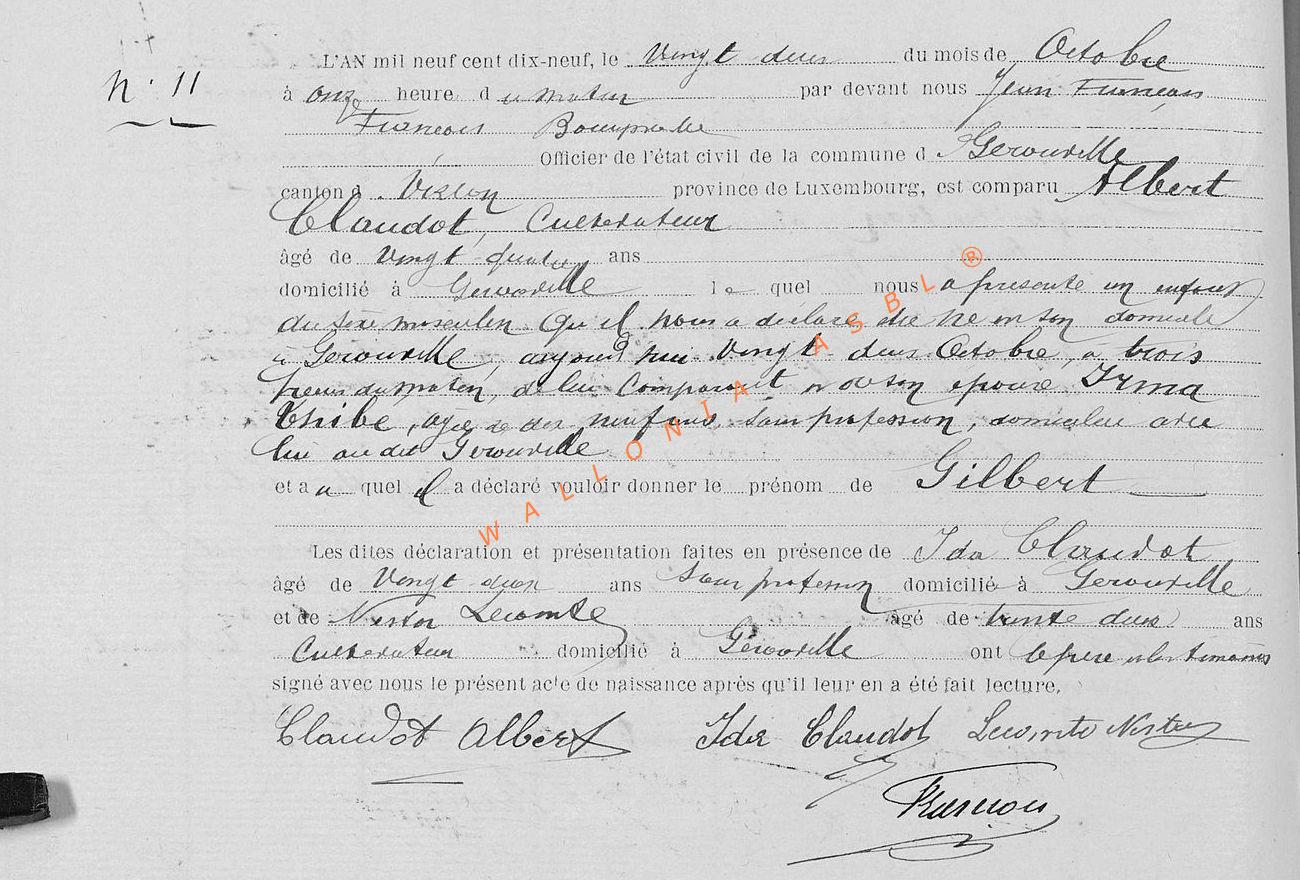 N° 11
L'AN mil neuf cent dix-neuf, le Vingt deux du mois de Octobre
à onze heure du matin par devant nous Jean François
François
Officier de l'état civil de la commune d Gerouville
canton d Virton province de Luxembourg, est comparu Albert
Claudot, Cultivateur
âgé de Vingt quatre ans
domicilié à Gerouville le quel nous a présenté un enfant
du sexe masculin qu'il nous a déclaré être né en son domicile
à Gerouville, aujourd'hui Vingt deux Octobre, à trois
heures du matin, de lui Comparant et de son épouse Irma
Thibe, agée de dix neuf ans, sans profession, domiciliée avec
lui au dit Gerouville
et a u quel il a déclaré vouloir donner le prénom de Gilbert
Les dites déclaration et présentation faites en présence de Ida Claudot
âgé de Vingt deux ans sans profession domicilié à Gerouville
et de Nestor Lecomte âgé de trente deux ans
Cultivateur domicilié à Gérouville ont le père et les témoins
signé avec nous le présent acte de naissance après qu'il leur en a été fait lecture.
Claudot Albert Ida Claudot Lecomte Nestor
WALLONIA ASBL ®